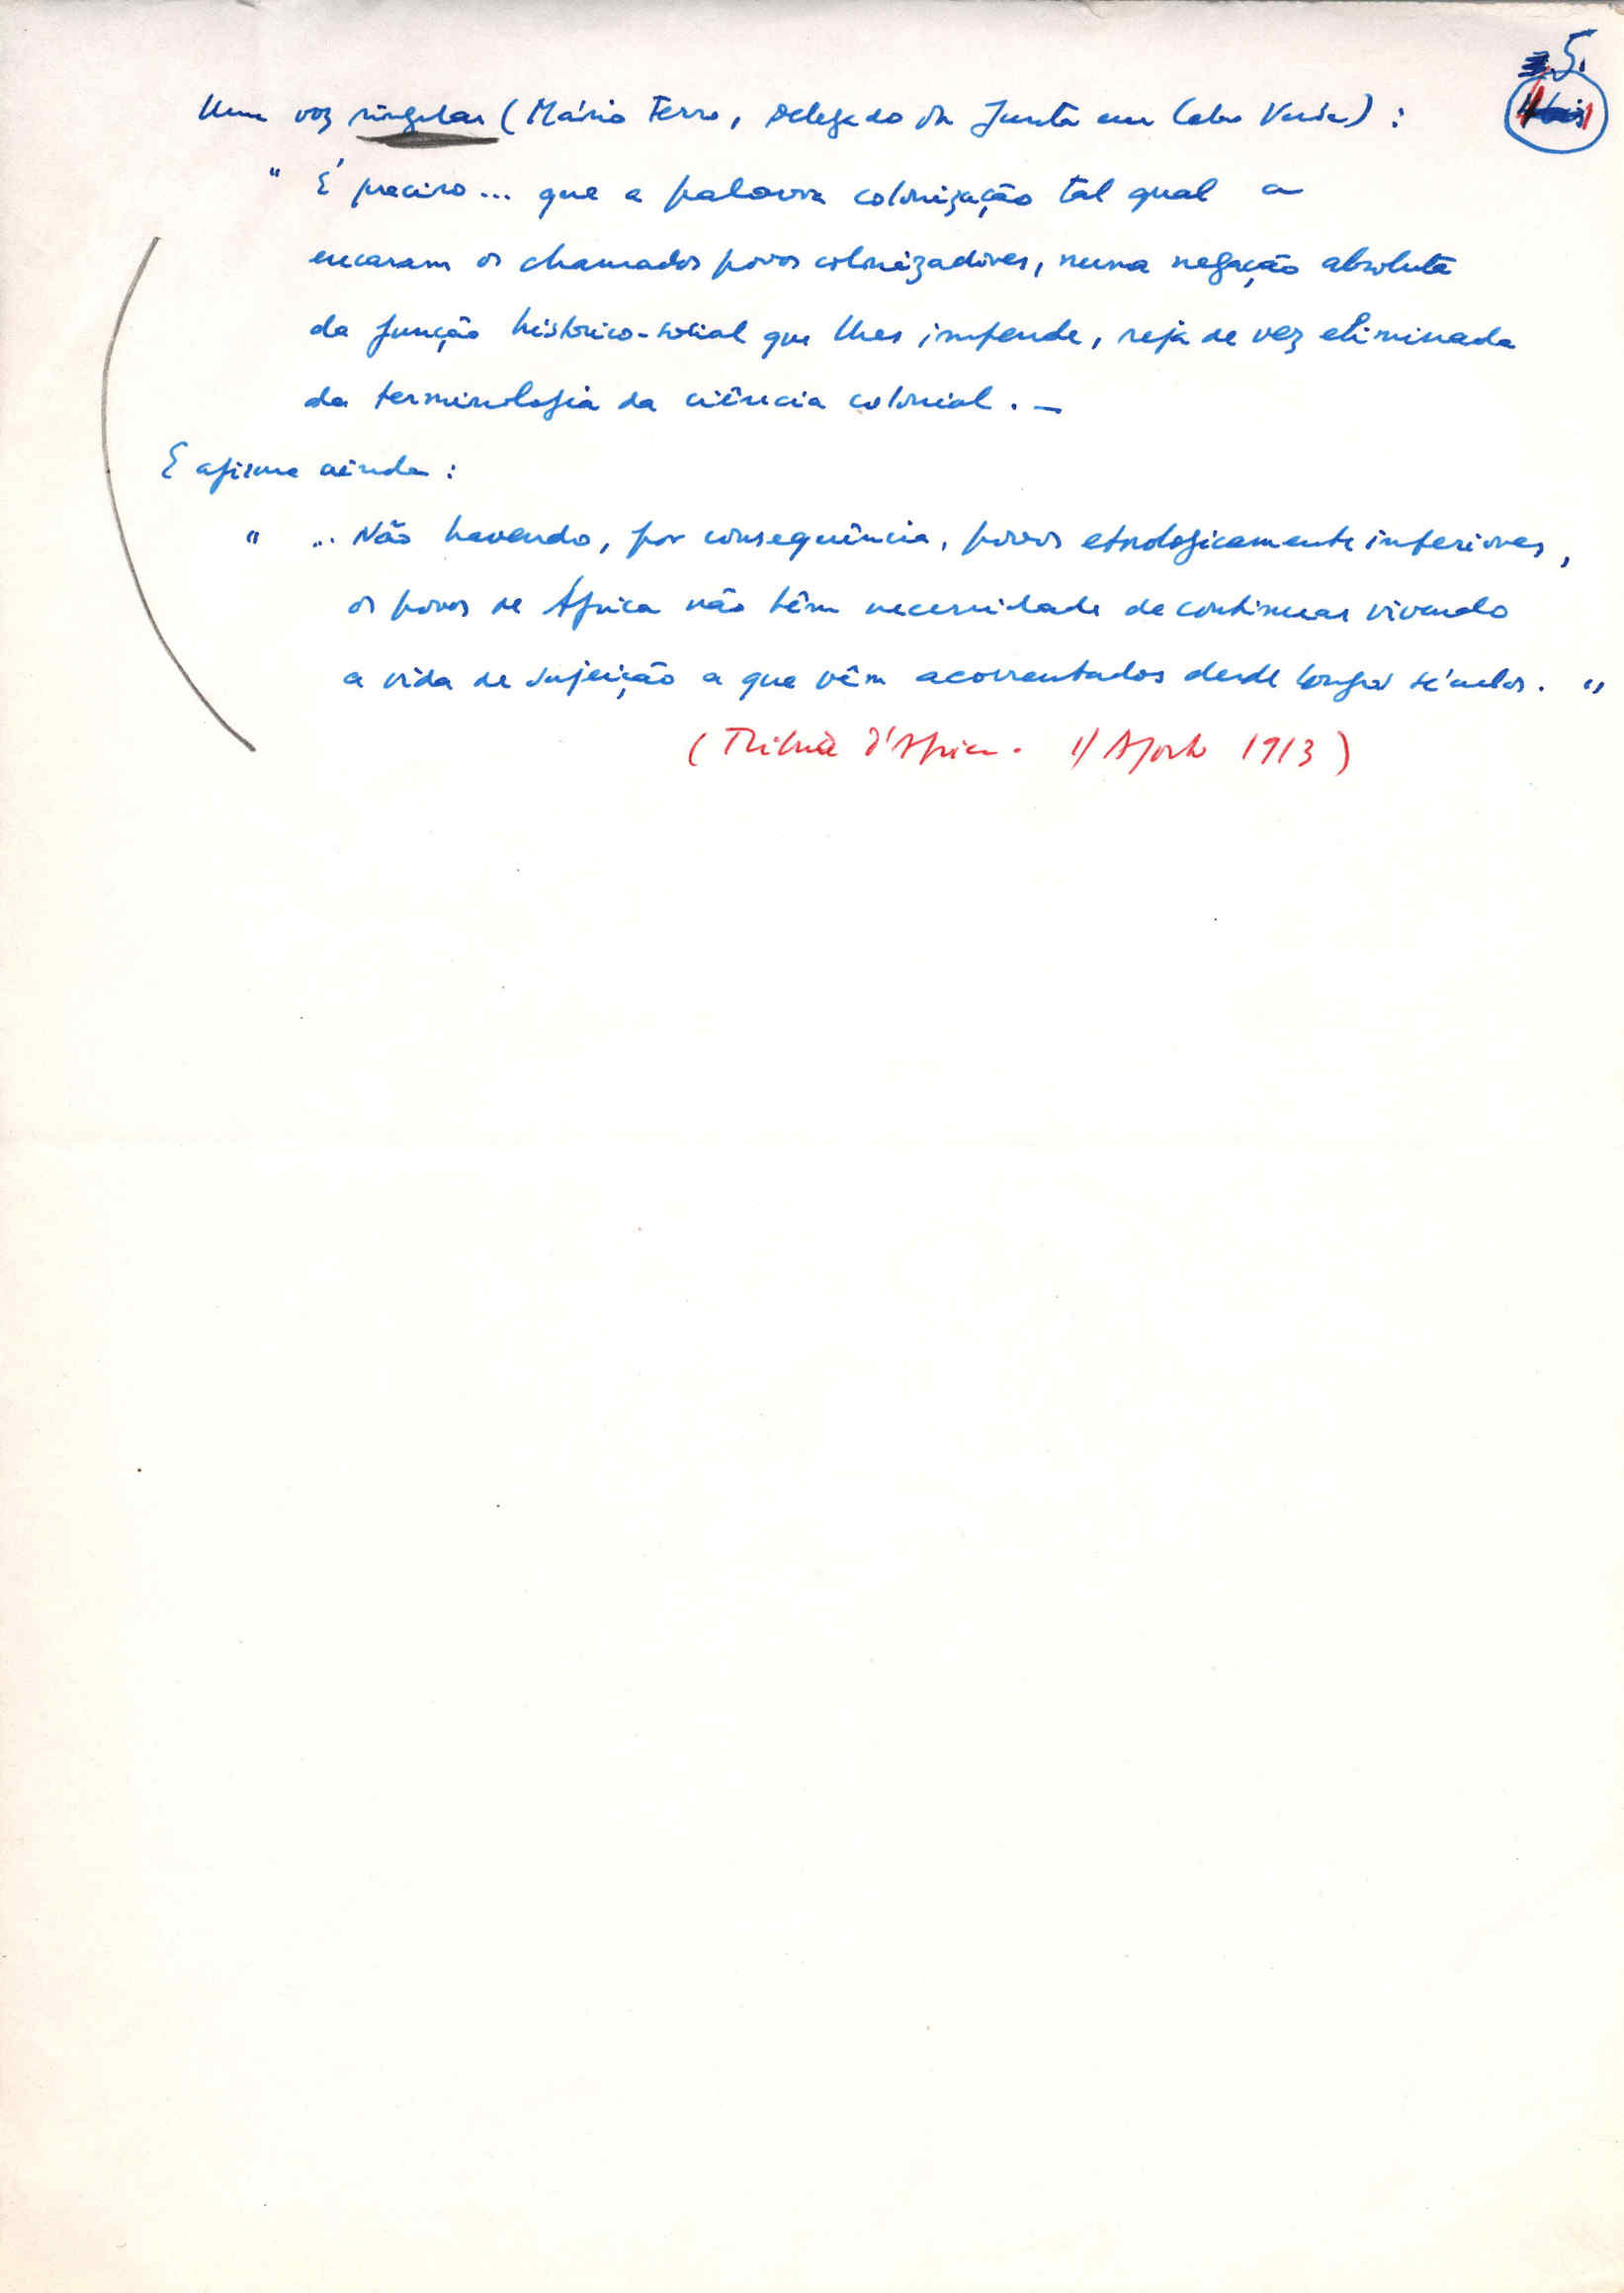 5.
Uma voz singular (Mário Ferro, delegado da Junta em Cabo Verde) :
" É preciso... que a palavra colonização tal qual a
encaram os chamados povos colonizadores, numa negação absoluta
da função histórico-social que lhes impende, seja de vez eliminada
da terminologia da ciência colonial. —
E afirma ainda :
" ... Não havendo, por consequência, povos etnologicamente inferiores,
os povos de África não têm necessidade de continuar vivendo
a vida de sujeição a que vêm acorrentados desde longos séculos. "
( Tribuna d'Africa. 1/ Agosto 1913 )